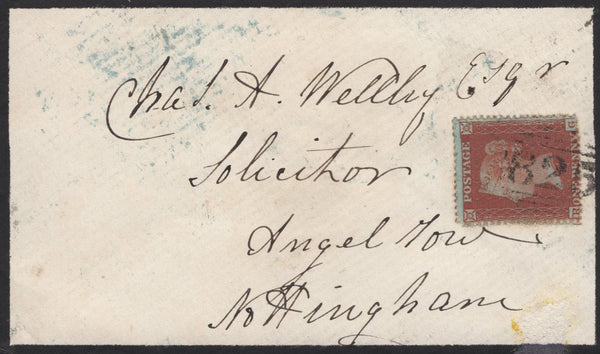 Chas. A. Wellby Esqr
Solicitor
Angel Row
Nottingham
POSTAGE